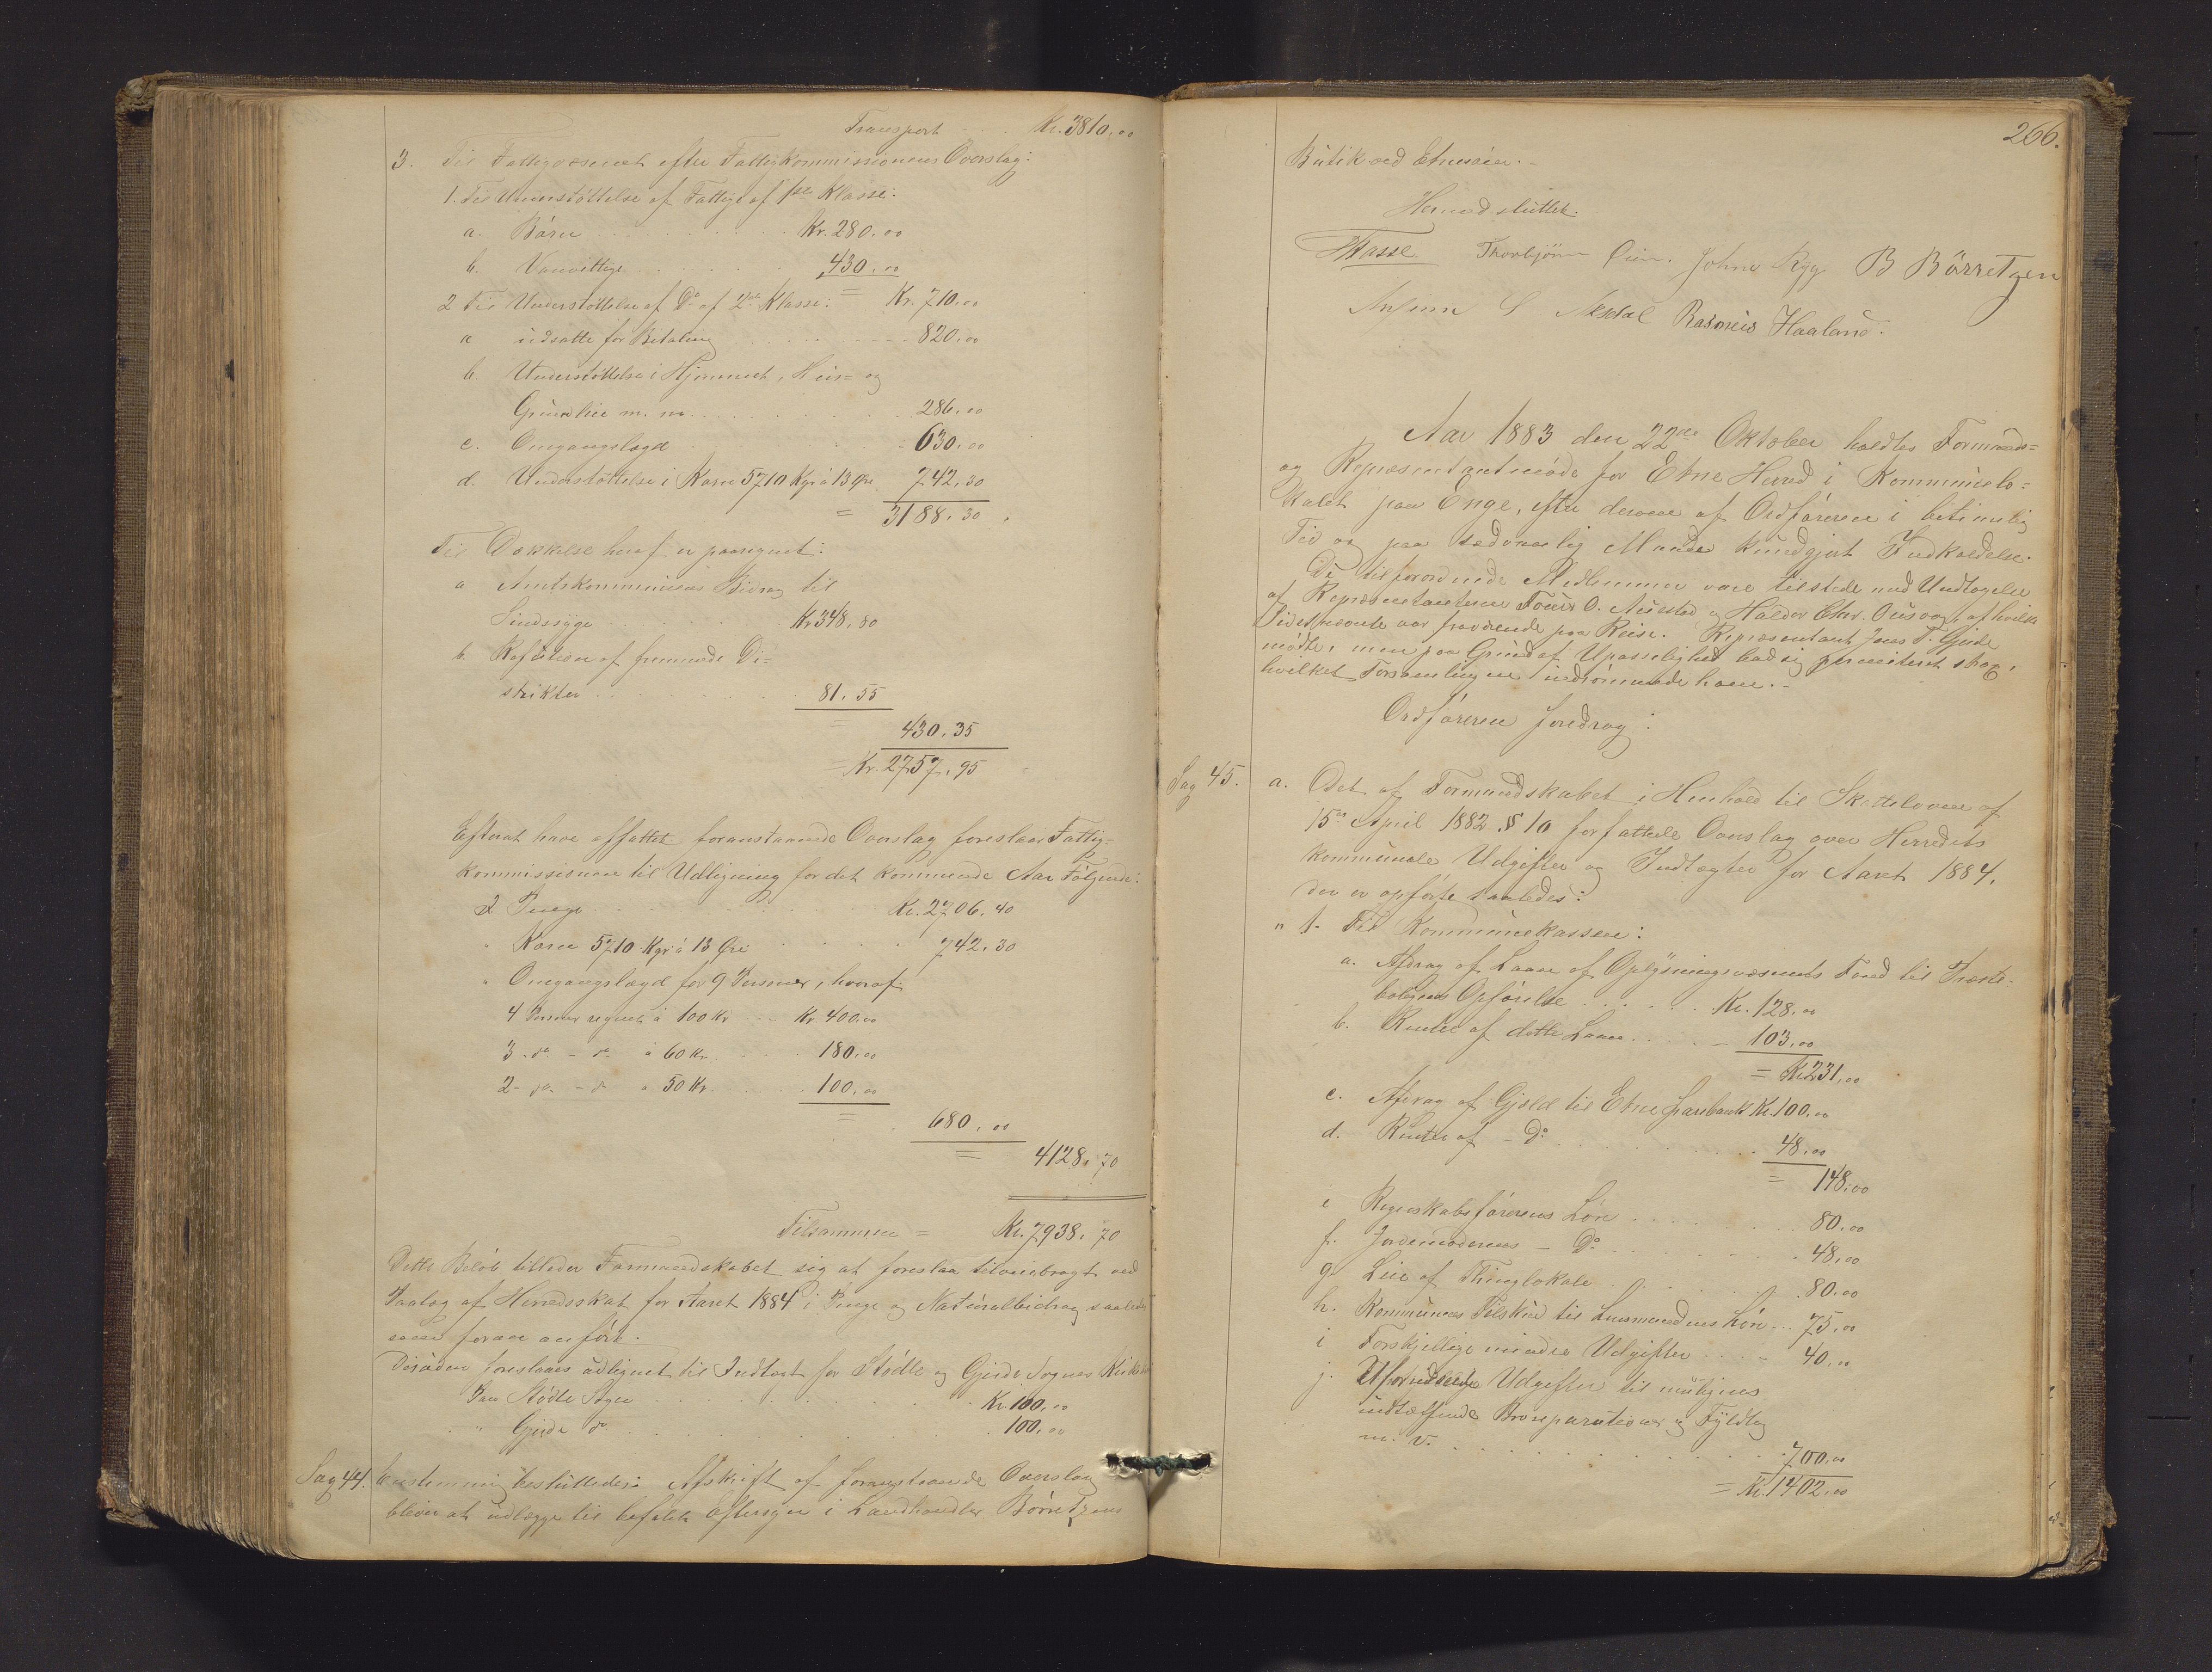 Transport . . . Kr. 3810,00
3. Til Fattigvæsenet efter Fattigkommissionens Overslag:
1. Til Understøttelse af Fattige af 1ste Klasse:
a. Børn . . . Kr. 280,00
b. Vanvittige . . . 430,00
= Kr. 710,00
2 Til Understøttelse af Do af 2den Klasse:
a udsatte for Betaling . . . 820,00
b. Understøttelse i Hjemmet, Huus= og
Grundleie m. m. . . . 286,00
c. Omgangslægd - 630,00
d. Understøttelse i Korn 5710 Kgr à 13 Øre 742,30
= 3188,30
Til Dækkelse heraf er paaregnet:
a Amtskommunens Bidrag til
Sindssyge . . . Kr 348,80
b. Refusion af fremmede Di=
strikter . . . 81,55
= 430,35
= Kr. 2757,95
Efterat have affattet foranstaaende Overslag foreslaar Fattig=
kommissionen til Udligning for det kommende Aar Følgende:
I Penge . . . Kr. 2706,40
" Korn 5710 Kgr à 13 Øre . . . 742,30
" Omgangslægd for 9 Personer, hvoraf
4 Personer regnet à 100 Kr . . . Kr 400,00
3 - do - do à 60 Kr . . . 180,00
2 - do - do à 50 Kr. . . . 100,00
= 680,00
= 4128,70
Tilsammen = Kr. 7938,70
Dette Beløb tillader Formandskabet sig at foreslaa tilveiebragt ved
Paalæg af Herredsskat for Aaret 1884 i Penge og Naturalbidrag saaledes
som foran anført.
Desuden foreslaaes udlignet til Indtægt for Stødle og Gjerde Sognes Kirker
Paa Stødle Sogn . . . Kr. 100,00
" Gjerde do . . . 100,00
Sag 44. Enstemmig besluttedes: Afskrift af foranstaaende Overslag
bliver at udlægge til befalet Eftersyn i Landhandler Børretzens
266.
Butik ved Etnesøen.-
Hermed sluttet.
Thorbjørn Johne Ryg B Börretzen
Rasmus Haaland.
Aar 1883 den 22de Oktober holdtes Formands=
og Repræsentantmøde for Etne Herred i Kommunelo=
kalet paa Enge, efter derom af Ordføreren i betimelig
Tid og paa sædvanlig Maade kundgjort Indkaldelse.
De tilforordnede Medlemmer vare tilstede med Undtagelse
af Repræsentanterne O. Austad og Haldor Chr. af hvilke
Sidstnævnte var fraværende paa Reise. Repræsentant Jens T. Gjerde
mødte, men paa Grund af Upasselighed bad sig permitteret strax,
hvilket Forsamlingen indrømmede ham.-
Ordføreren foredrog:
Sag 45. a. Det af Formandskabet i Henhold til Skatteloven af
15de April 1882 § 10 forfattede Overslag over Herredets
kommunale Udgifter og Indtægter for Aaret 1884,
der er opførte saaledes:
" 1. Til Kommunekassen:
a. Afdrag af Laan af Oplysningsvæsenets Fond til Præste-
boligens Opførelse . . . Kr. 128,00
b. Renter af dette Laan . . . - 103,00
= Kr. 231,00
c. Afdrag af Gjæld til Etne Sparebank Kr. 100,00
d. Renter af - Do . . . 48,00
= 148,00
e Regnskabsførerens Løn . . . 80,00
f. Jordemoderens - Do . . . 48,00
g. Leie af Thinglokale . . . 80,00
h. Kommunens Tilskud til Lensmandens Løn . . . 75,00
i Forskjellige mindre Udgifter . . . - 40,00
j. Uforudseede Udgifter til muligens
indtræffende Broreparationer og Fyldtag
m. v. . . . 700,00
= Kr. 1402,00